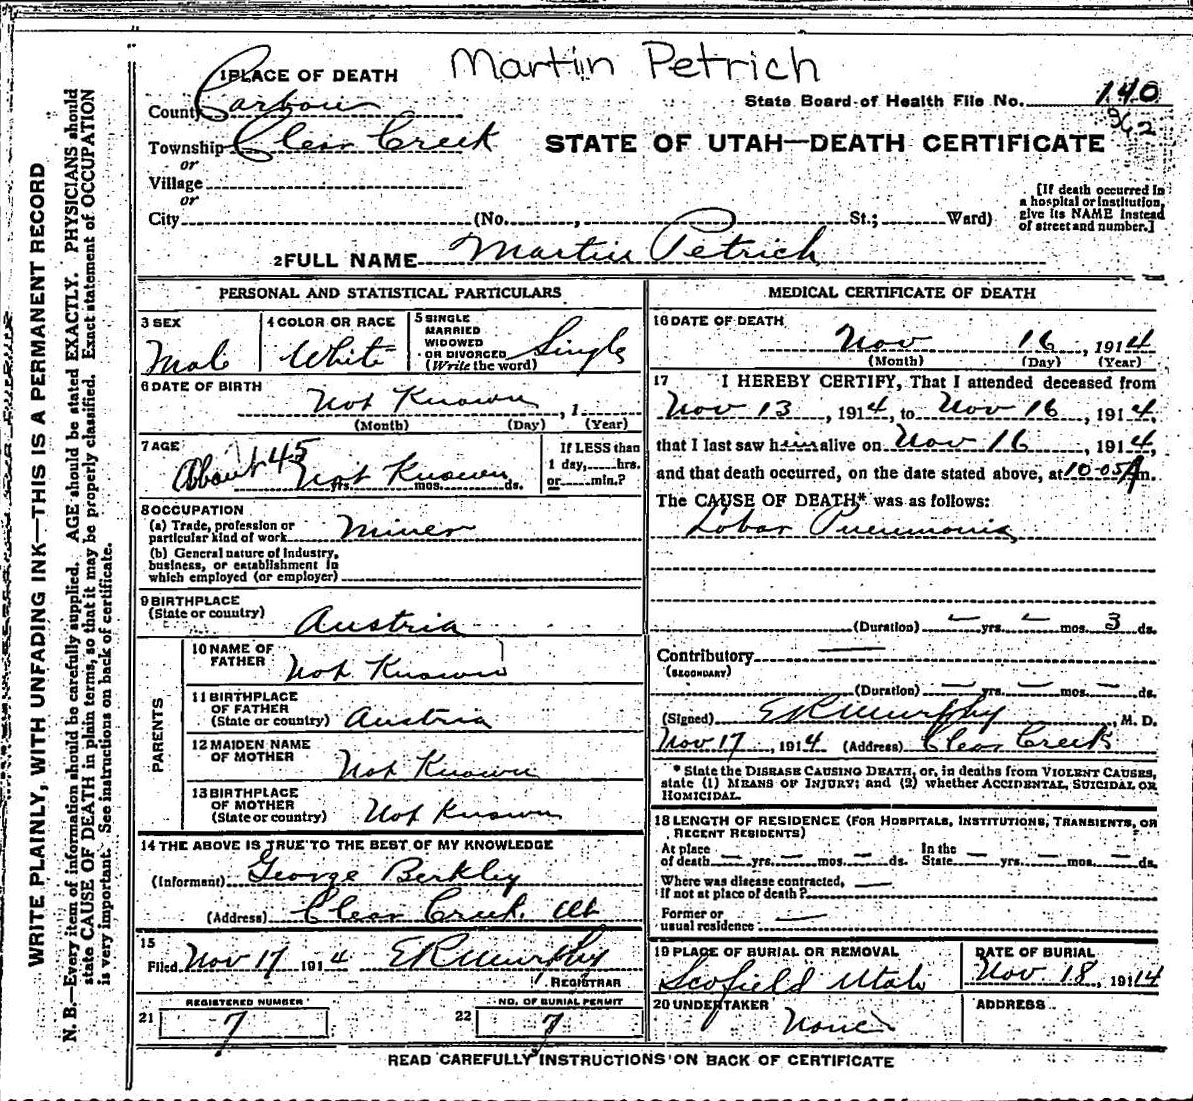 Martin Petrich
1 PLACE OF DEATH
County Carbon
State Board of Health File No. 140
362
Township Clear Creek
STATE OF UTAH—DEATH CERTIFICATE
or
Village
or
City (No. , St.; Ward)
[If death occurred in
a hospital or institution,
give its NAME instead
of street and number.]
2 FULL NAME Martin Petrich
PERSONAL AND STATISTICAL PARTICULARS
3 SEX
Male
4 COLOR OR RACE
White
5 SINGLE
MARRIED
WIDOWED
OR DIVORCED
(Write the word) Single
6 DATE OF BIRTH
Not Known , 1
(Month) (Day) (Year)
7 AGE
About 45 Not Known
yrs. mos. ds.
If LESS than
1 day, hrs.
or min.?
8 OCCUPATION
(a) Trade, profession or
particular kind of work Miner
(b) General nature of Industry,
business, or establishment in
which employed (or employer)
9 BIRTHPLACE
(State or country) Austria
PARENTS
10 NAME OF
FATHER Not Known
11 BIRTHPLACE
OF FATHER
(State or country) Austria
12 MAIDEN NAME
OF MOTHER Not Known
13 BIRTHPLACE
OF MOTHER
(State or country) Not Known
14 THE ABOVE IS TRUE TO THE BEST OF MY KNOWLEDGE
(Informant) George Berkley
(Address) Clear Creek. Ut
15
Filed Nov 17 1914 ER Murphy
REGISTRAR
REGISTERED NUMBER
21 7
NO. OF BURIAL PERMIT
22 7
MEDICAL CERTIFICATE OF DEATH
16 DATE OF DEATH
Nov 16 , 1914
(Month) (Day) (Year)
17 I HEREBY CERTIFY, That I attended deceased from
Nov 13 , 1914, to Nov 16 , 1914,
that I last saw him alive on Nov 16 , 1914,
and that death occurred, on the date stated above, at 10-05 A m.
The CAUSE OF DEATH* was as follows:
Lobar Pneumonia
(Duration) — yrs. — mos. 3 ds.
Contributory —
(SECONDARY)
(Duration) — yrs. — mos. — ds.
(Signed) ER Murphy , M. D.
Nov 17 , 1914 (Address) Clear Creek
* State the DISEASE CAUSING DEATH, or, in deaths from VIOLENT CAUSES,
state (1) MEANS OF INJURY; and (2) whether ACCIDENTAL, SUICIDAL OR
HOMICIDAL.
18 LENGTH OF RESIDENCE (FOR HOSPITALS, INSTITUTIONS, TRANSIENTS, OR
RECENT RESIDENTS)
At place
of death — yrs. — mos. — ds.
In the
State — yrs. — mos. — ds.
Where was disease contracted, —
if not at place of death?
Former or
usual residence —
19 PLACE OF BURIAL OR REMOVAL
Scofield Utah
DATE OF BURIAL
Nov 18, 1914
20 UNDERTAKER
None
ADDRESS
READ CAREFULLY INSTRUCTIONS ON BACK OF CERTIFICATE
WRITE PLAINLY, WITH UNFADING INK—THIS IS A PERMANENT RECORD
N. B.—Every item of information should be carefully supplied. AGE should be stated EXACTLY. PHYSICIANS should
state CAUSE OF DEATH in plain terms, so that it may be properly classified. Exact statement of OCCUPATION
is very important. See instructions on back of certificate.